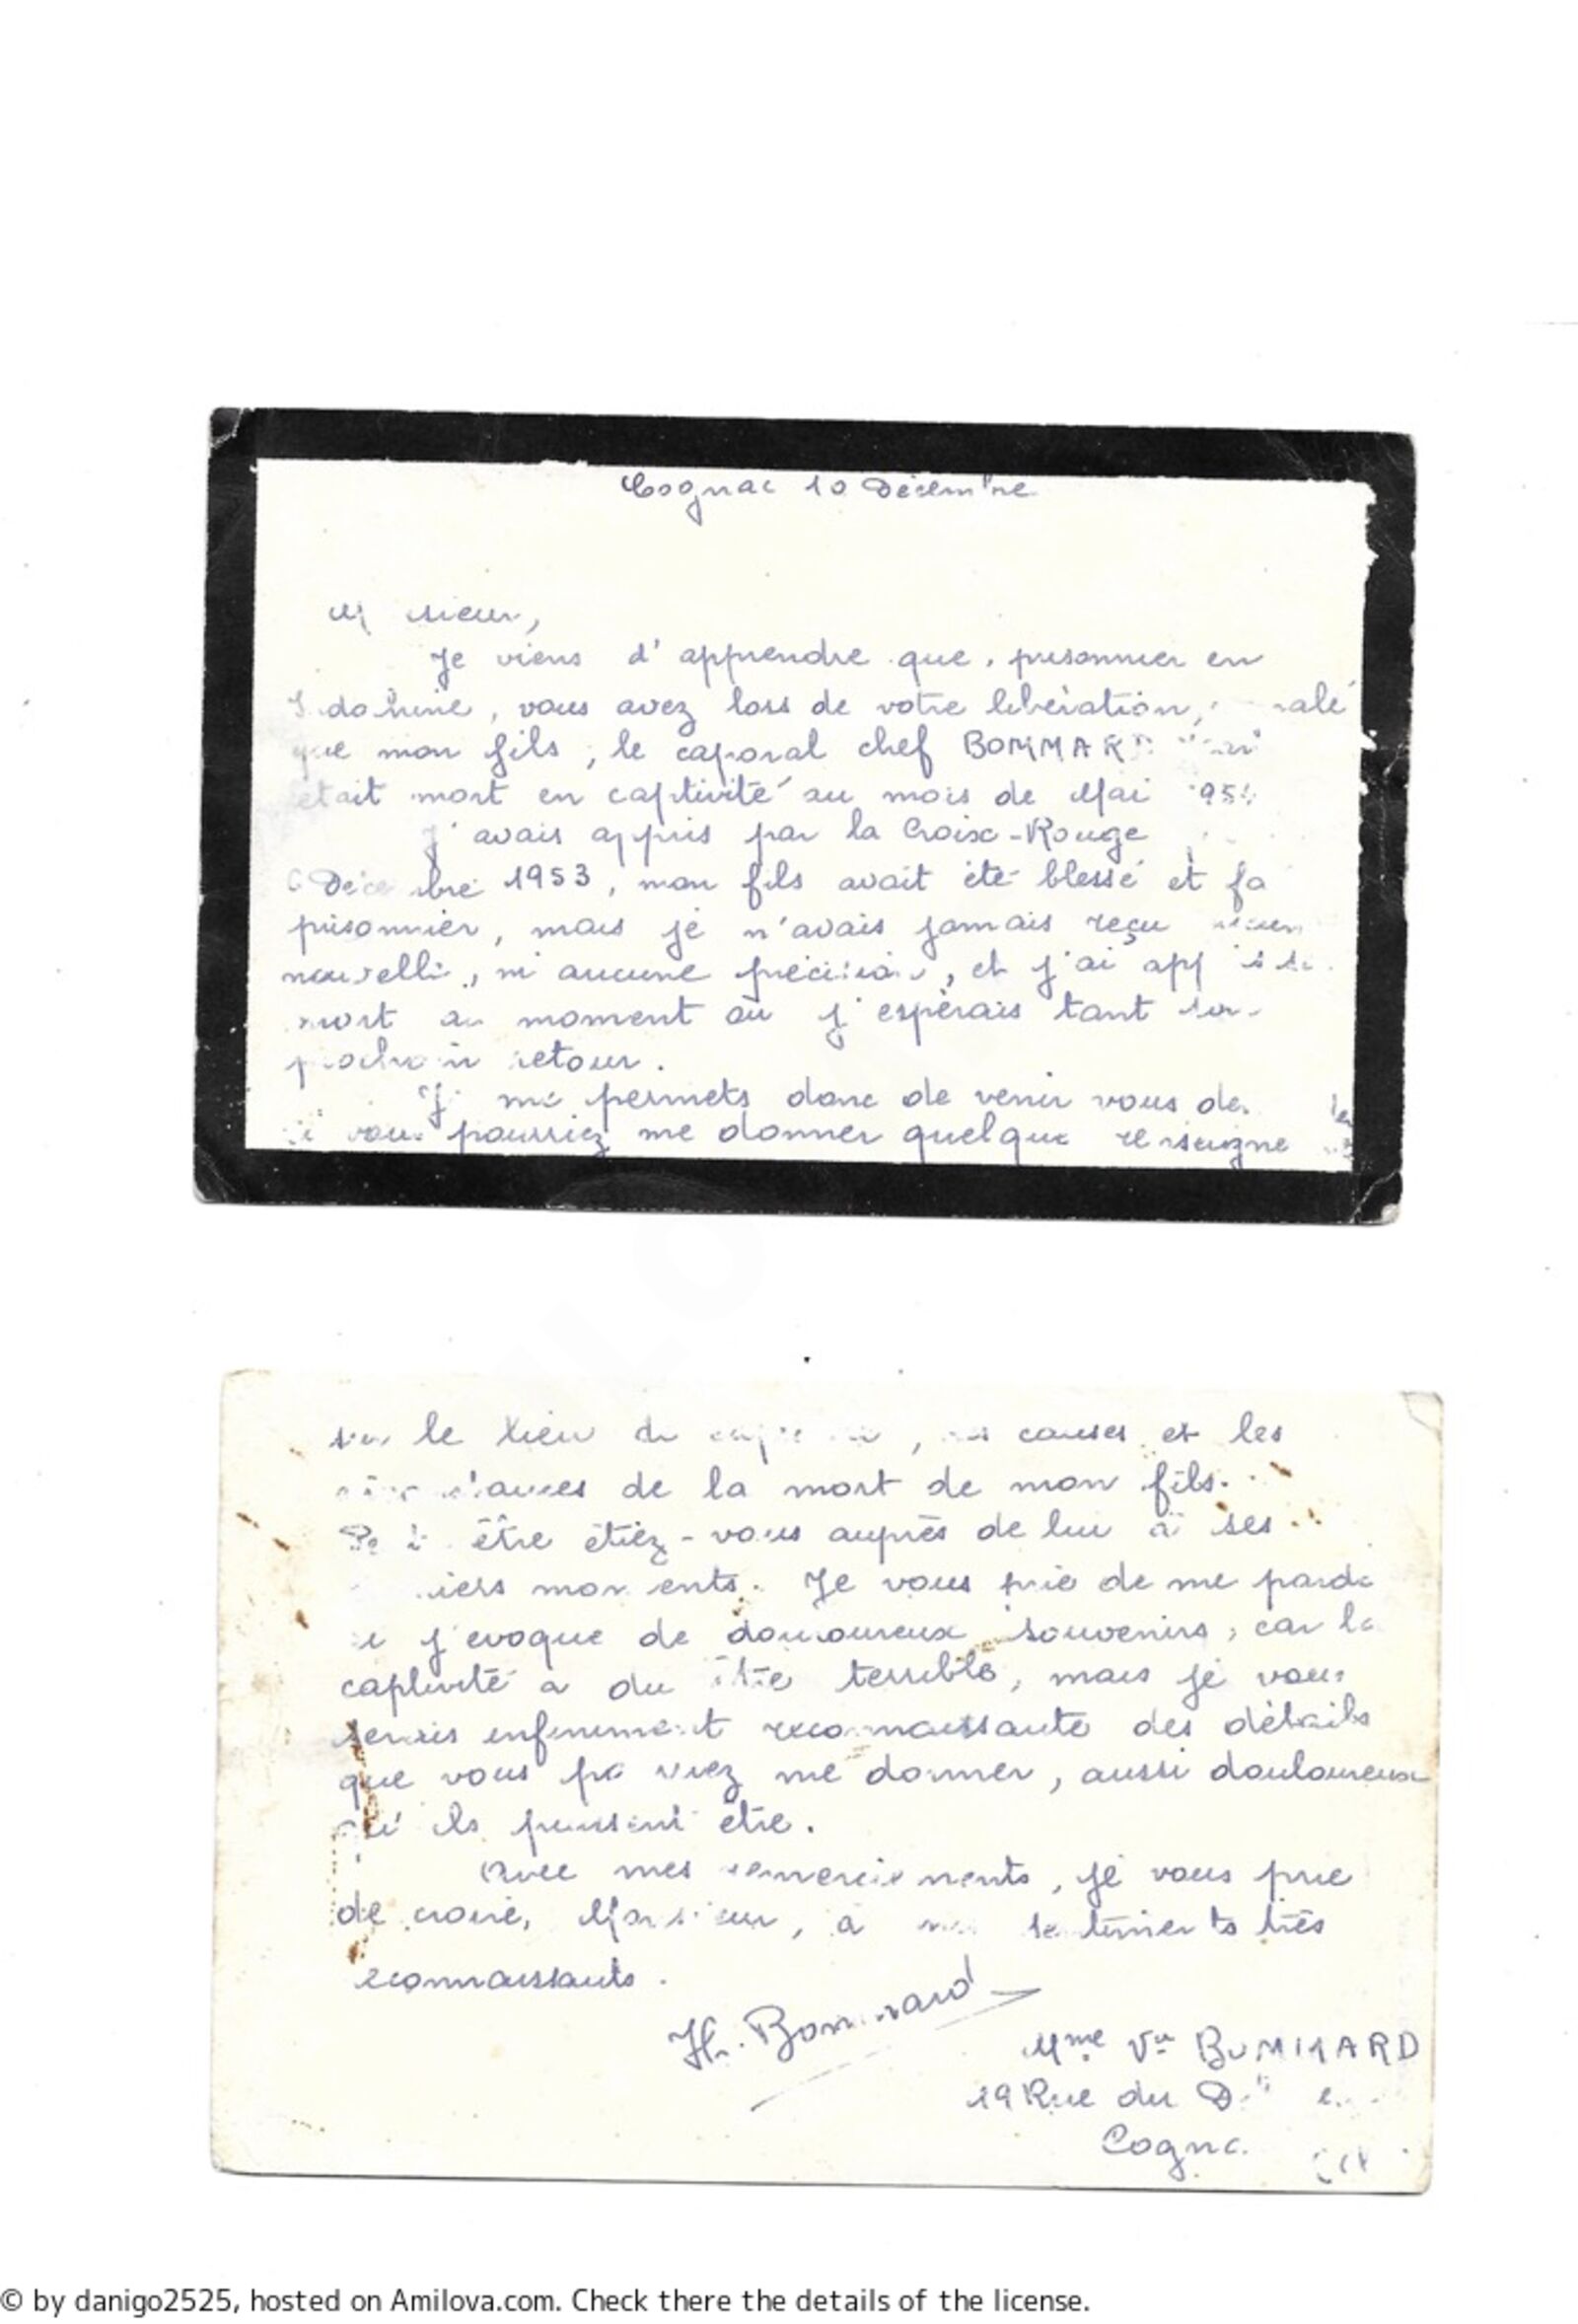 Cognac 10 Décembre
Monsieur,
Je viens d'apprendre que, prisonnier en
Indochine, vous avez lors de votre libération, signalé
que mon fils, le caporal chef BOMMARD
était mort en captivité au mois de Mai 1954
J'avais appris par la Croix-Rouge
Décembre 1953, mon fils avait été blessé et fa
prisonnier, mais je n'avais jamais reçu aucune
nouvelle, ni aucune précision, et j'ai appris sa
mort au moment où j'espérais tant son
prochain retour.
Je me permets donc de venir vous demander
si vous pourriez me donner quelque renseignements
sur le lieu de , les causes et les
circonstances de la mort de mon fils.
Peut être étiez-vous auprès de lui à ses
derniers moments. Je vous prie de me pardo
si j'evoque de douloureux souvenirs, car la
captivité a du être terrible, mais je vous
serais infiniment reconnaissante des détails
que vous pourriez me donner, aussi douloureux
qu'ils puissent être.
Avec mes remerciements, je vous prie
de croire, Monsieur, à mes sentiments très
reconnaissants.
H. Bommard
Mme Vve BOMMARD
19 Rue du
Cognac
© by danigo2525, hosted on Amilova.com. Check there the details of the license.